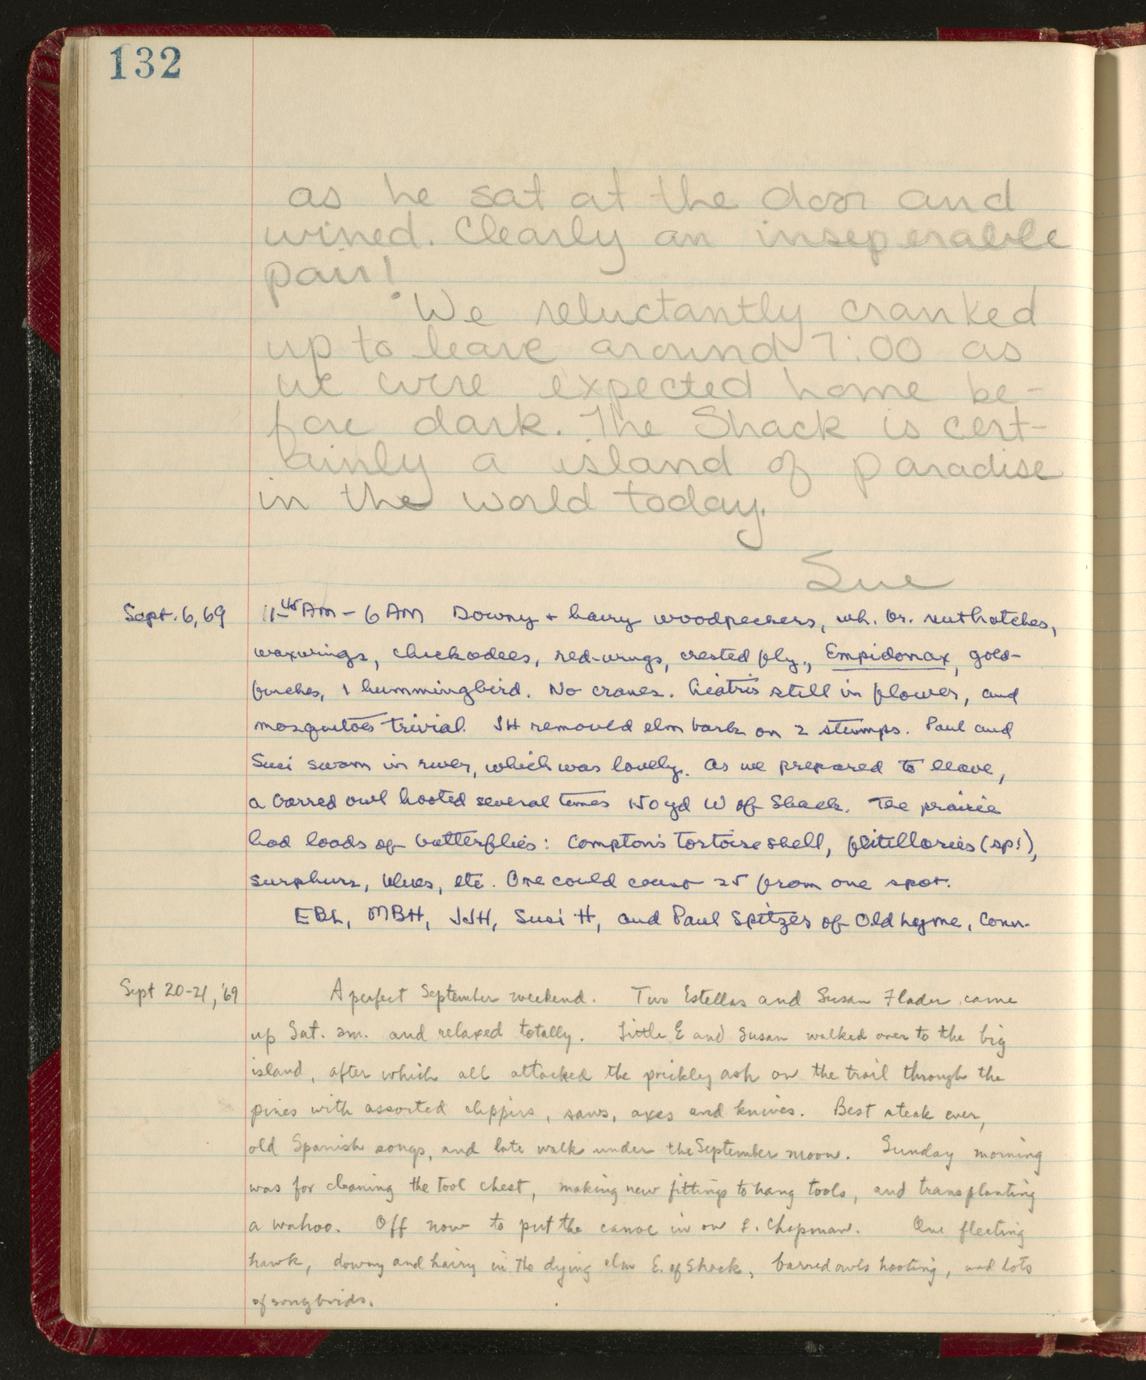 132
as he sat at the door and
wined. Clearly an inseperable
pair!
We reluctantly cranked
up to leave around 7:00 as
we were expected home be-
fore dark. The Shack is cert-
ainly a island of paradise
in the world today.
Sue
Sept. 6, 69 11 45 AM - 6 AM Downy + hairy woodpeckers, wh. br. nuthatches,
waxwings, chickadees, red-wings, crested fly., Empidonax, gold-
finches, 1 hummingbird. No cranes. Liatris still in flower, and
mosquitoes trivial. JH removed elm bark on 2 stumps. Paul and
Susi swam in river, which was lovely. As we prepared to leave,
a barred owl hooted several times 150 yd W of Shack. The prairie
had loads of butterflies: Compton's tortoise shell, fritillaries (sp!),
surphurs, blues, etc. One could count 25 from one spot.
EBL, MBH, JJH, Susi H, and Paul Spitzer of Old Lyme, Conn.
Sept 20-21, '69 A perfect September weekend. Two Estellas and Susan Flader came
up Sat. am. and relaxed totally. Little E and Susan walked over to the big
island, after which all attacked the prickly ash on the trail through the
pines with assorted clippers, saws, axes and knives. Best steak ever,
old Spanish songs, and late walk under the September moon. Sunday morning
was for cleaning the tool chest, making new fittings to hang tools, and transplanting
a wahoo. Off now to put the canoe in on L. Chapman. One fleeting
hawk, downy and hairy in the dying elm E. of Shack, barred owls hooting, and lots
of songbirds.